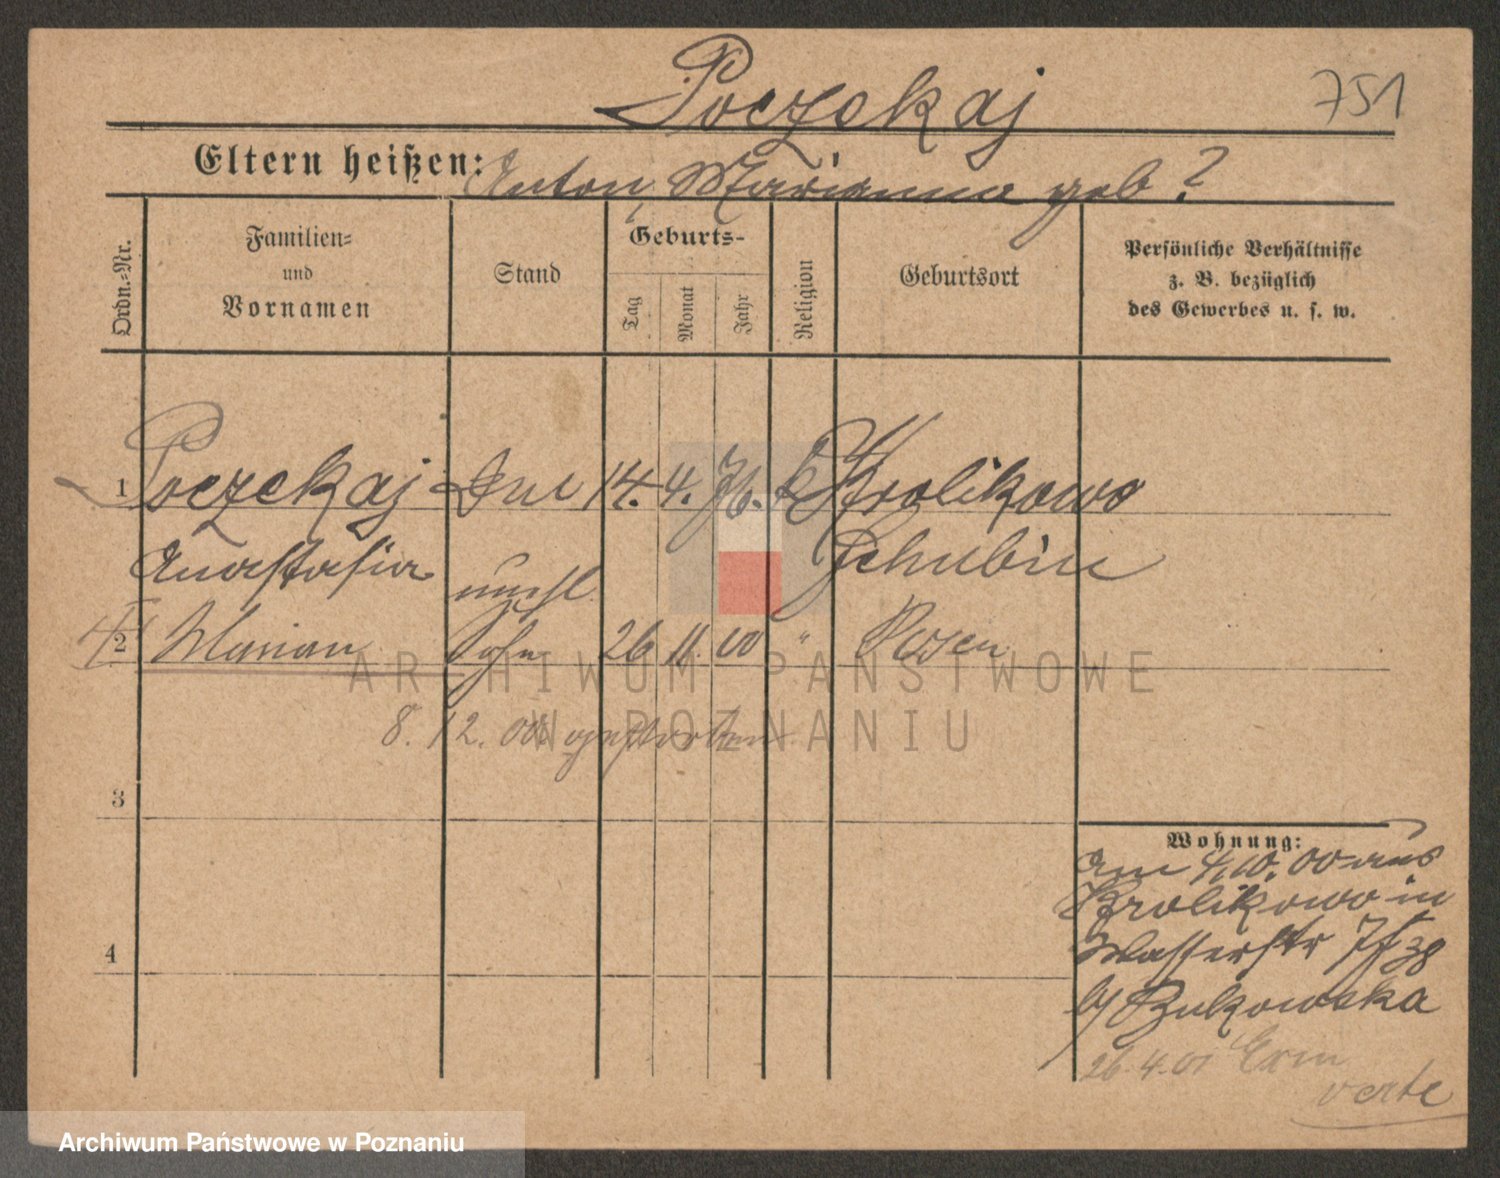 Poczekaj
751
Eltern heißen: Anton, Marianna geb ?
Ordn.-Nr.
Familien-
und
Vornamen
Stand
Geburts-
Tag
Monat
Jahr
Religion
Geburtsort
Persönliche Verhältnisse
z. B. bezüglich
des Gewerbes u. s. w.
1 Poczekaj 14. 4. 76. k Krolikowo
Anastasia Schubin
unehl.
2 Marian Sohn 26 11. 00 " Posen
8. 12. 00 gestorben
3
Wohnung:
am 4.10.00 aus
Krolikowo in
4
Wasserstr
b/ Bukowska
26.4.01
verte
ARCHIWUM PAŃSTWOWE
W POZNANIU
Archiwum Państwowe w Poznaniu